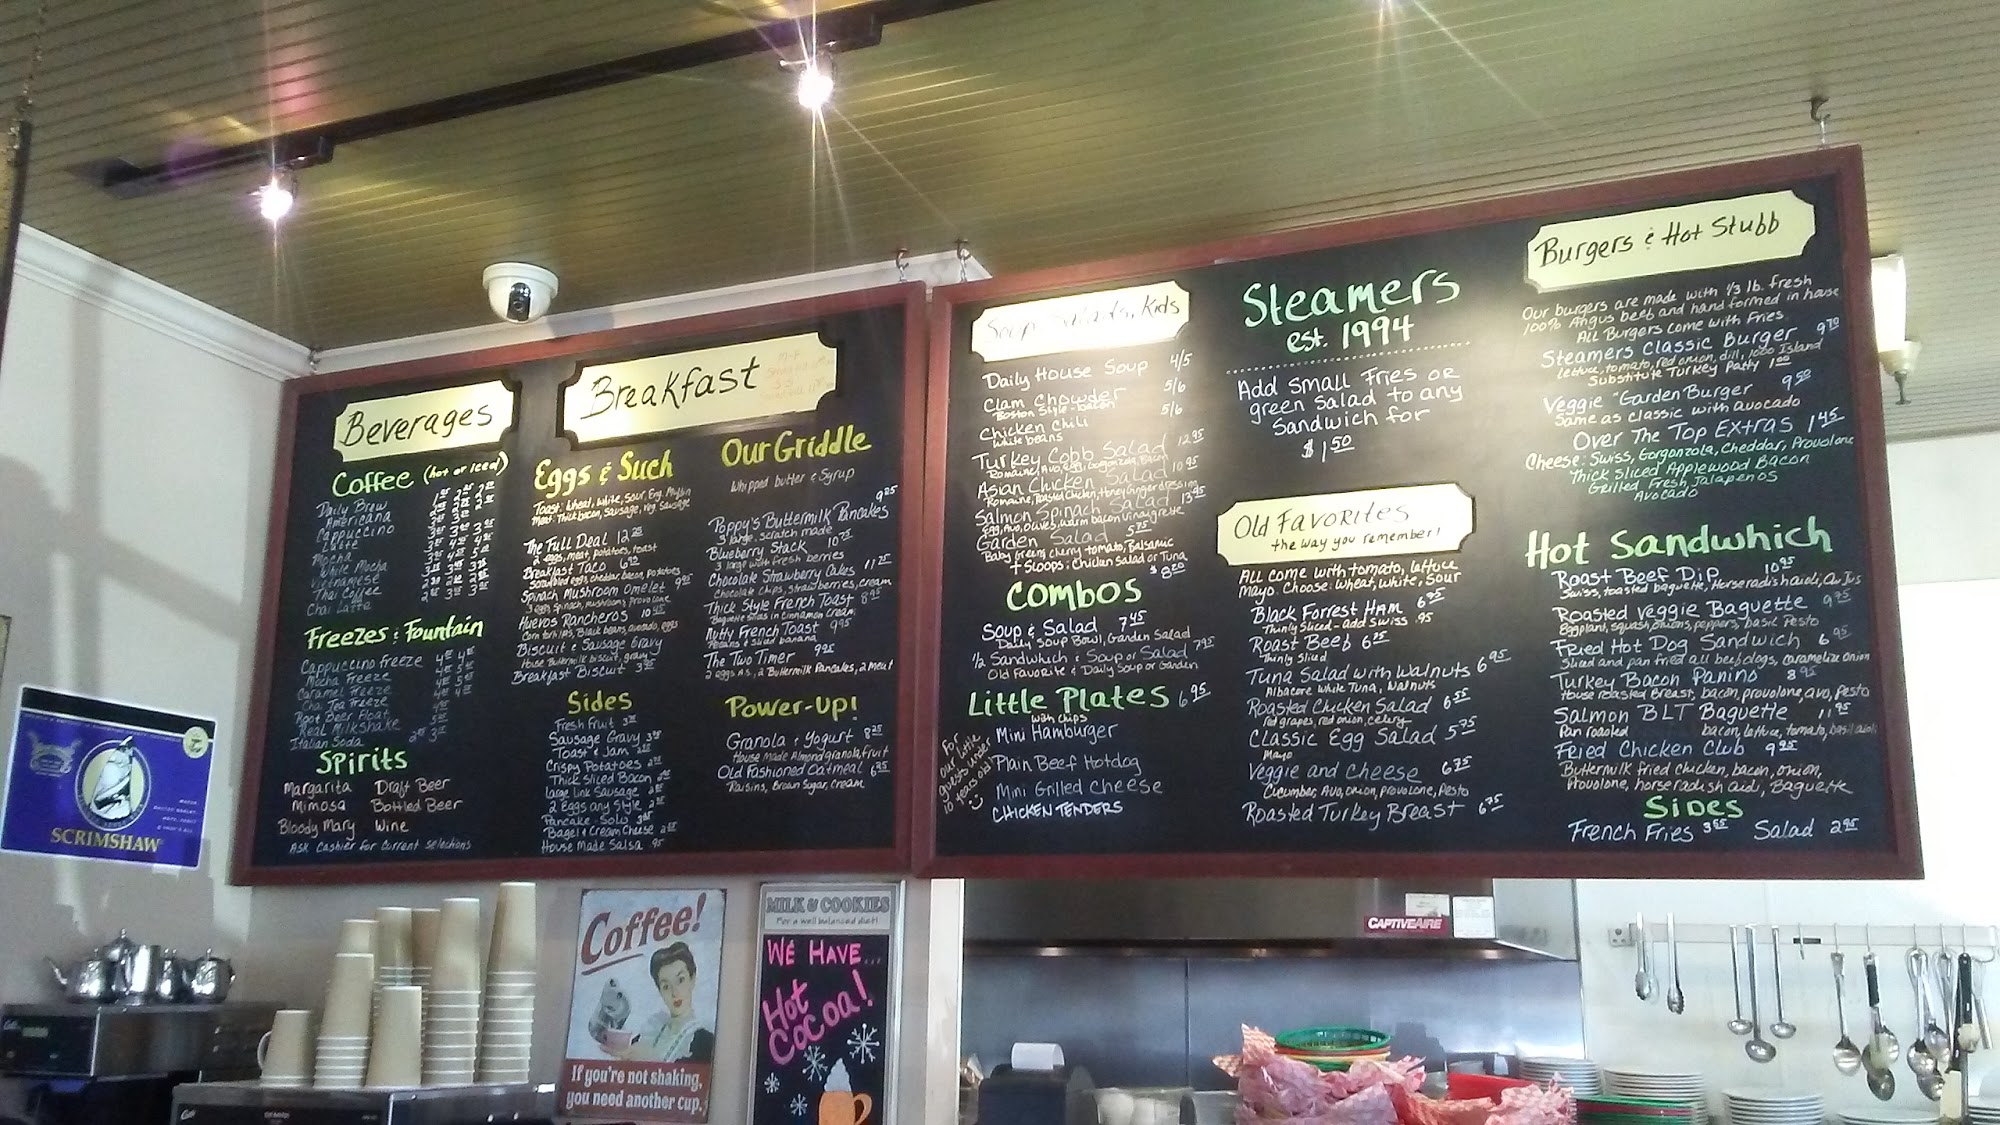 Beverages
Coffee (hot or iced)
Daily Brew
Americana
Cappuccino
Latte
Mocha
White Mocha
Vietnamese
Thai Coffee
Chai Latte
Freezes & Fountain
Cappuccino Freeze
Mocha Freeze
Caramel Freeze
Chai Tea Freeze
Root Beer Float
Real Milkshake
Italian Soda
Spirits
Margarita Draft Beer
Mimosa Bottled Beer
Bloody Mary Wine
Ask Cashier for current selections
Breakfast
Eggs & Such
Toast: Wheat, White, Sour, Eng. Muffin
Meat: Thick bacon, Sausage, Veg. Sausage
The Full Deal 12 25
2 eggs, meat, potatoes, toast
Breakfast Taco
Scrambled eggs, cheddar, bacon, potatoes
Spinach Mushroom Omelet
3 eggs, spinach, mushrooms, provolone
Huevos Rancheros
Corn tortillas, Black beans, avocado, eggs
Biscuit & Sausage Gravy
House Buttermilk biscuit, gravy
Breakfast Biscuit
Sides
Fresh Fruit
Sausage Gravy
Toast & Jam
Crispy Potatoes
Thick Sliced Bacon
Large link Sausage
2 Eggs any Style
Pancake-Solo
Bagel & Cream Cheese
House Made Salsa
Our Griddle
Whipped butter & Syrup
Poppy's Buttermilk Pancakes
3 large, scratch made
Blueberry Stack
3 large with fresh berries
Chocolate Strawberry Cakes
Chocolate chips, strawberries, cream
Thick Style French Toast
Baguette slices in Cinnamon cream
Nutty French Toast
Pecans & sliced banana
The Two Timer
2 eggs, 2 Buttermilk Pancakes, 2 meat
Power-up!
Granola & Yogurt 8 25
House Made Almond granola, fruit
Old Fashioned Oatmeal
Raisins, Brown Sugar, Cream
Soup, Salads, Kids
Daily House Soup 4/5
Clam Chowder 5/6
Boston Style-bacon
Chicken Chili 5/6
White beans
Turkey Cobb Salad 12 95
Romaine, Avo, egg, Gorgonzola, Bacon
Asian Chicken Salad 10 95
Romaine, Roasted Chicken, Honey Ginger dressing
Salmon Spinach Salad 13 95
Egg, Avo, Olives, warm bacon vinaigrette
Garden Salad 5 75
Baby Greens, cherry tomato, Balsamic
+ Scoops: Chicken Salad or Tuna
Combos
Soup & Salad 7 45
Daily Soup Bowl, Garden Salad
1/2 Sandwhich & Soup or Salad 7 95
Old Favorite & Daily Soup or Garden
Little Plates 6 95
with chips
For our little guests under 10 years old!
Mini Hamburger
Plain Beef Hotdog
Mini Grilled Cheese
Chicken Tenders
Steamers
est. 1994
Add small Fries or
green Salad to any
Sandwich for
$1 50
Old Favorites
the way you remember!
All come with tomato, lettuce
mayo. Choose: wheat, white, sour
Black Forrest Ham 6 95
Thinly Sliced - add Swiss .95
Roast Beef 6 25
Thinly Sliced
Tuna Salad with Walnuts 6 95
Albacore White Tuna, Walnuts
Roasted Chicken Salad 6 55
red grapes, red onion, celery
Classic Egg Salad 5 75
Mayo
Veggie and Cheese 6 75
Cucumber, Avo, onion, provolone, Pesto
Roasted Turkey Breast 6 75
Burgers & Hot Stubb
Our burgers are made with 1/3 lb. fresh
100% Angus beef and hand formed in house
All Burgers come with Fries
Steamers Classic Burger 9 70
lettuce, tomato, red onion, dill, 1000 Island
Substitute Turkey Patty 1 00
Veggie "Garden Burger
Same as classic with avocado
Over The Top Extras 1 45
Cheese: Swiss, Gorgonzola, Cheddar, Provolone
Thick Sliced Applewood Bacon
Grilled Fresh Jalapenos
Avocado
Hot Sandwhich
Roast Beef Dip 10 95
Swiss, toasted baguette, Horseradish aioli, Au Jus
Roasted Veggie Baguette
Eggplant, squash, onions, peppers, basil Pesto
Fried Hot Dog Sandwich 6 95
Sliced and pan fried all beef dogs, caramelize onion
Turkey Bacon Panino 8 95
House roasted Breast, bacon, provolone, avo, Pesto
Salmon BLT Baguette 11 95
Pan roasted bacon, lettuce, tomato, basil aioli
Fried Chicken Club
Buttermilk fried chicken, bacon, onion,
Provolone, horseradish aioli, Baguette
Sides
French Fries Salad 2 95
SCRIMSHAW
Coffee!
If you're not shaking,
you need another cup.
MILK & COOKIES
For a well balanced diet!
We Have...
Hot
Cocoa!
CAPTIVEAIRE